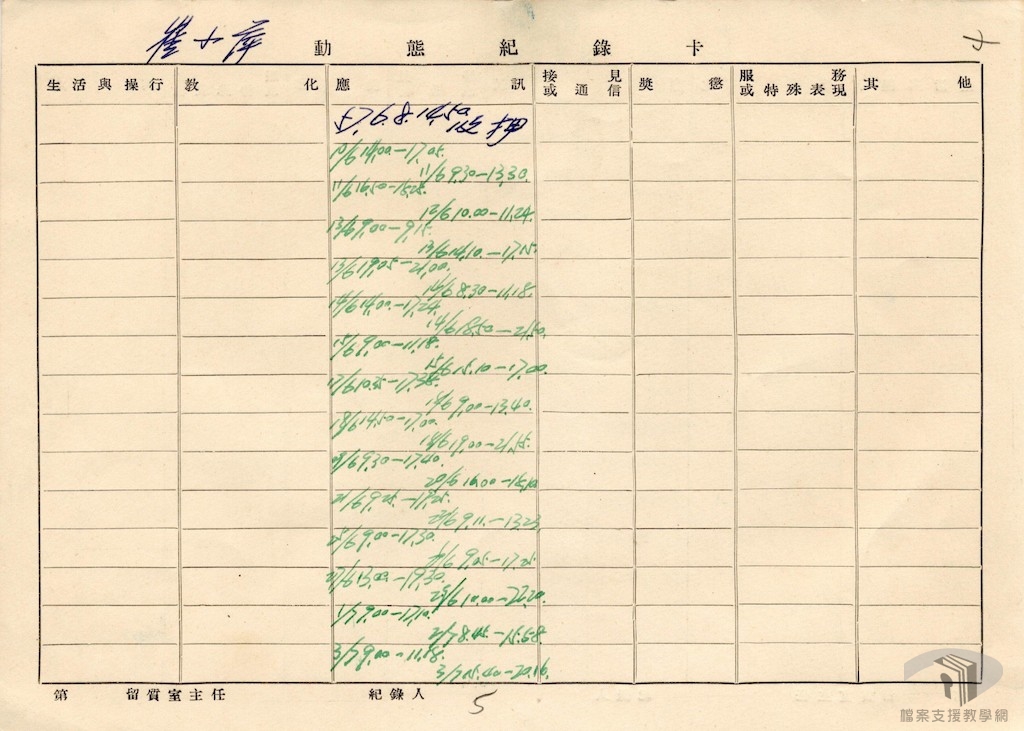 崔小萍 動態紀錄卡
生活與操行 教化 應訊 接見或通信 獎懲 服務或特殊表現 其他
57,6.8.14,50 收押
10/6 14,00-17,05.
11/6 9,30-13,30.
11/6 16,50-18,25.
12/6 10.00-11,24.
13/6 9,00-9,15.
13/6 14,10.-17,15.
13/6 19,05-21,00.
14/6 8,30-11,18.
14/6 14,00.-17,24.
14/6 18,50-21,50.
15/6 9,00-11,18.
15/6 15,10-17,00.
9,00-13,40.
18/6 14,50-17,00.
18/6 19,00-21,55.
19/6 9,30-17,40.
21/6 9,25.-17,25.
9,11.-13,23
9,00-17,30.
9,05-17,25.
13,00-17,30.
10,00-22,20.
1/7 9,00-17,10.
2/7 8,45.-15,58.
3/7 9,00-11,18.
3/7 15,40-20,16.
第 留質室主任 紀錄人 5
檔案支援教學網